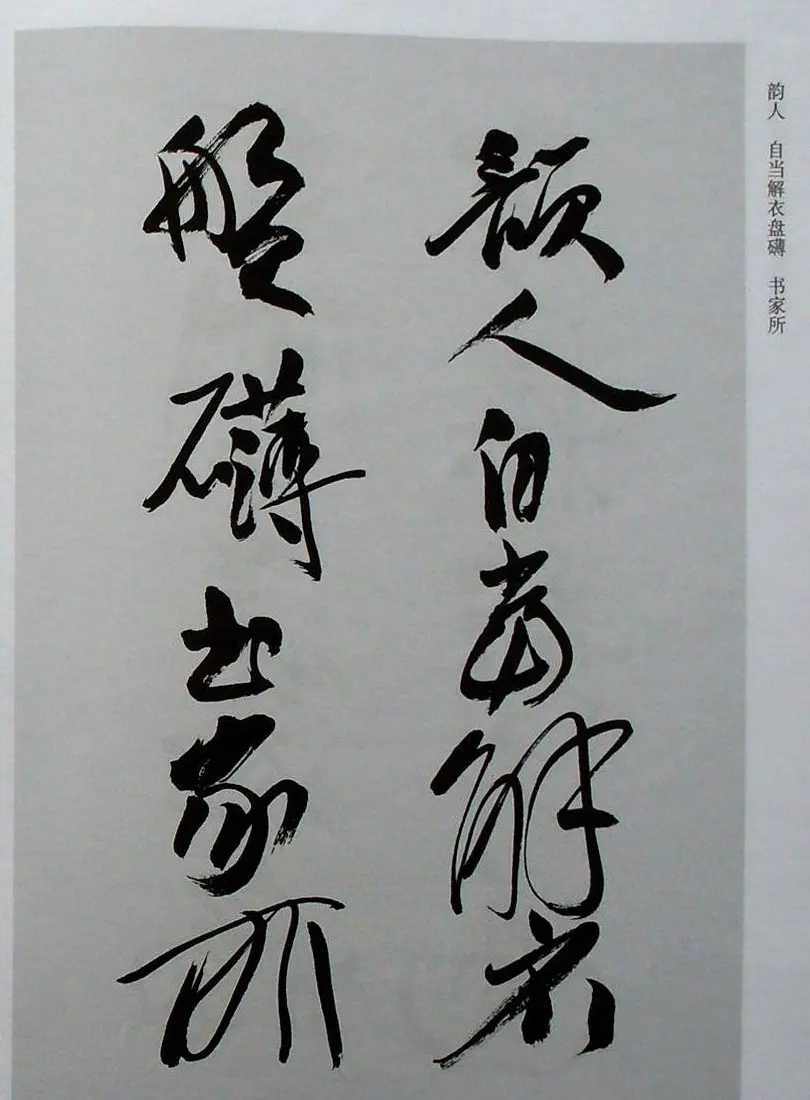 韵人 自当解衣盘礴 书家所
韻人自當解衣
盤礴書家所